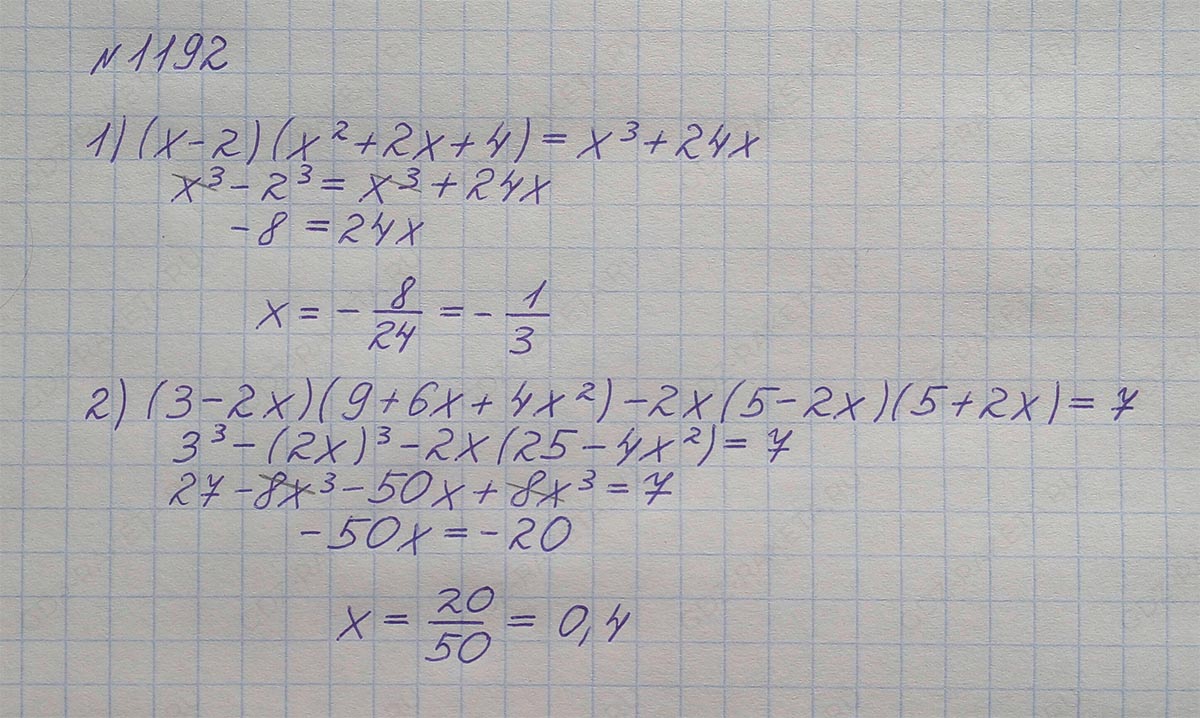 №1192
1) (x-2)(x²+2x+4)=x³+24x
x³-2³=x³+24x
-8=24x
x=-8/24=-1/3
2) (3-2x)(9+6x+4x²)-2x(5-2x)(5+2x)=7
3³-(2x)³-2x(25-4x²)=7
27-8x³-50x+8x³=7
-50x=-20
x=20/50=0,4